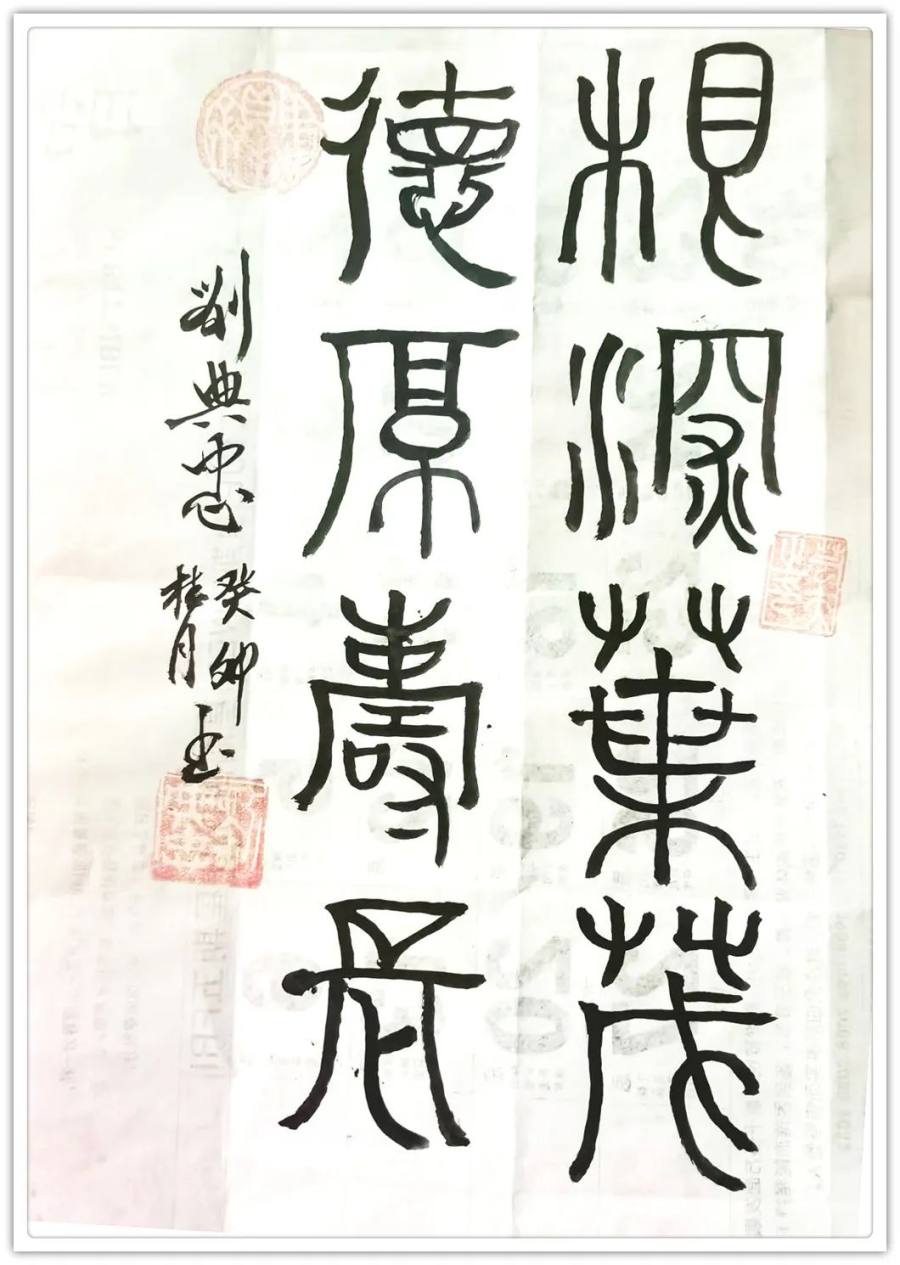 根深葉茂
德厚壽長
劉典忠
癸卯
桂月
玉